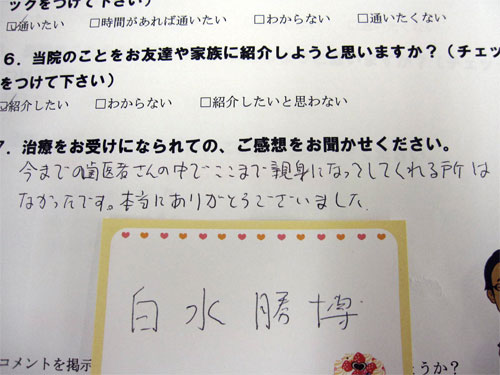 ックをつけて下さい）
☑通いたい　□時間があれば通いたい　□わからない　□通いたくない
6．当院のことをお友達や家族に紹介しようと思いますか？（チェッ
をつけて下さい）
☑紹介したい　□わからない　□紹介したいと思わない
7．治療をお受けになられての、ご感想をお聞かせください。
今までの歯医者さんの中でここまで親身になってしてくれる所は
なかったです。本当にありがとうございました。
白水勝博
コメントを掲示
ようか？